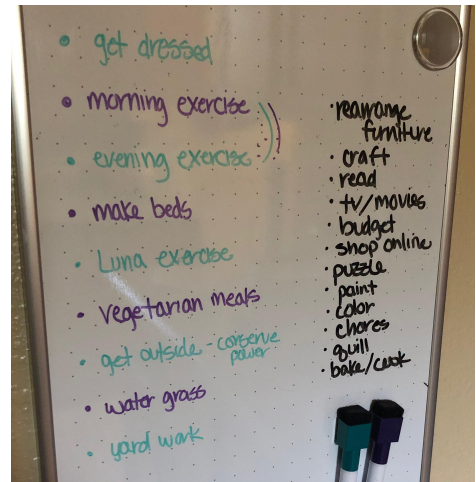 • get dressed
• morning exercise
• evening exercise
• make beds
• Luna exercise
• vegetarian meals
• get outside - conserve
power
• water grass
• yard work
• rearrange
furniture
• craft
• read
• tv/movies
• budget
• shop online
• puzzle
• paint
• color
• chores
• quill
• bake/cook